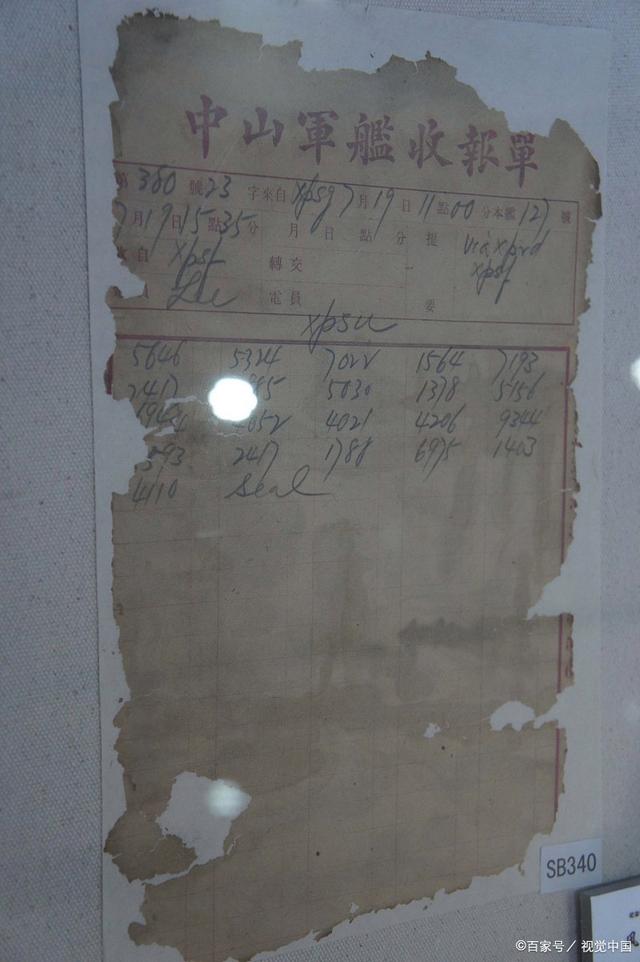 中山軍艦收報單
第 380 號 23 字來自 xpsg 7月19日11點00分本艦127號
7月19日15點35分 月 日 點 分 提 via xprd
自 xpsf 轉交 xpsf
員 Lee 電員 要
xpsu
5646 5324 7022 1564 7193
2417 5030 1378 5156
4021 4206 9344
2417 1788 6975 1403
4110 Seal
SB340
©百家号／视觉中国